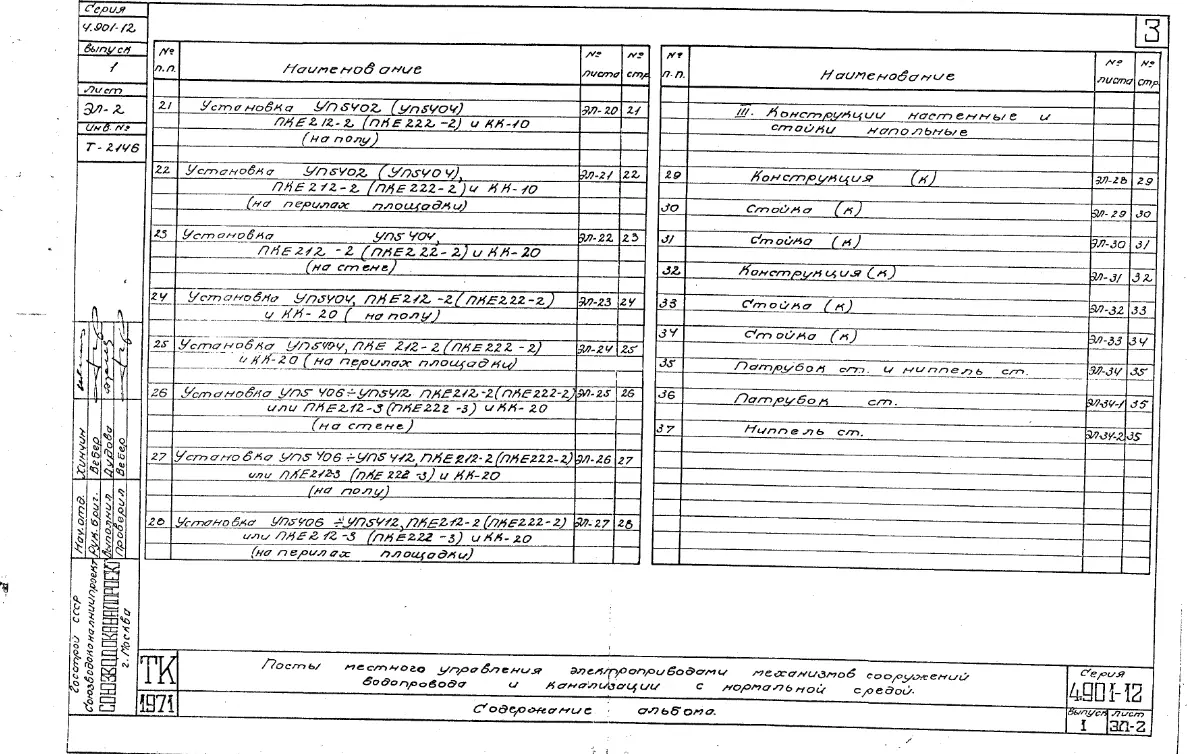 Серия
4.901-12
Выпуск
1
Лист
ЭЛ-2
Инв. №
Т-2146
3
№ п.п. Наименование № листа № стр
21 Установка УП5402 (УП5404) ЭЛ-20 21
ПКЕ212-2 (ПКЕ222-2) и КК-10
(на полу)
22 Установка УП5402 (УП5404), ЭЛ-21 22
ПКЕ212-2 (ПКЕ222-2) и КК-10
(на перилах площадки)
23 Установка УП5404, ЭЛ-22 23
ПКЕ212-2 (ПКЕ222-2) и КК-20
(на стене)
24 Установка УП5404, ПКЕ212-2 (ПКЕ222-2) ЭЛ-23 24
и КК-20 (на полу)
25 Установка УП5404, ПКЕ 212-2 (ПКЕ222-2) ЭЛ-24 25
и КК-20 (на перилах площадки)
26 Установка УП5406÷УП5412 ПКЕ212-2 (ПКЕ222-2) ЭЛ-25 26
или ПКЕ212-3 (ПКЕ222-3) и КК-20
(на стене)
27 Установка УП5406÷УП5412, ПКЕ212-2 (ПКЕ222-2) ЭЛ-26 27
или ПКЕ212-3 (ПКЕ222-3) и КК-20
(на полу)
28 Установка УП5406÷УП5412, ПКЕ212-2 (ПКЕ222-2) ЭЛ-27 28
или ПКЕ212-3 (ПКЕ222-3) и КК-20
(на перилах площадки)
№ п.п. Наименование № листа № стр.
III. Конструкции настенные и
стойки напольные
29 Конструкция (к) ЭЛ-28 29
30 Стойка (к) ЭЛ-29 30
31 Стойка (к) ЭЛ-30 31
32 Конструкция (к) ЭЛ-31 32
33 Стойка (к) ЭЛ-32 33
34 Стойка (к) ЭЛ-33 34
35 Патрубок ст. и ниппель ст. ЭЛ-34 35
36 Патрубок ст. ЭЛ-34-1 35
37 Ниппель ст. ЭЛ-34-2 35
Нач.отд. Хинчин
Рук.бриг. Вебер
Выполнил Дудова
Проверил Вебер
Госстрой СССР
Союзводоканалниипроект
СОЮЗВОДОКАНАЛПРОЕКТ
г. Москва
ТК
1971
Посты местного управления электроприводами механизмов сооружений
водопровода и канализации с нормальной средой.
Содержание альбома.
Серия
4.901-12
Выпуск Лист
1 ЭЛ-2